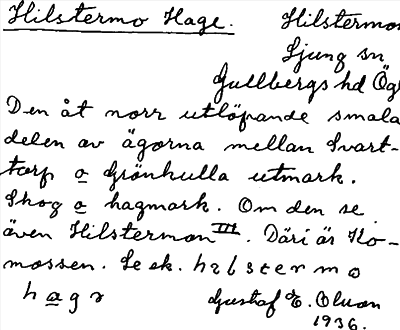 Hilstermo Hage. Hilstermon
Ljung sn
Gullbergs hd Ögl
Den åt norr utlöpande smala
delen av ägorna mellan Svart-
torp o Grönhulla utmark.
Skog o hagmark. Om den se
även Hilstermon III. Däri är Ko-
mossen. Se ek. hilstermo
hage Gustaf E. Olsson
1936.